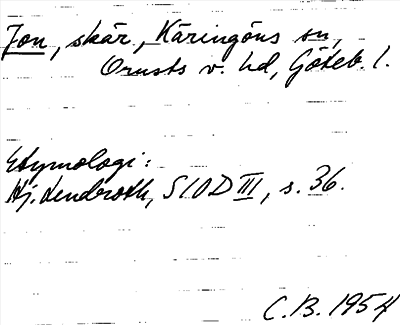 Jon, skär, Käringöns sn,
Orusts v. hd, Göteb. l.
Etymologi:
Hj. Lenderoth, SIOD III, s. 36.
C.B. 1954